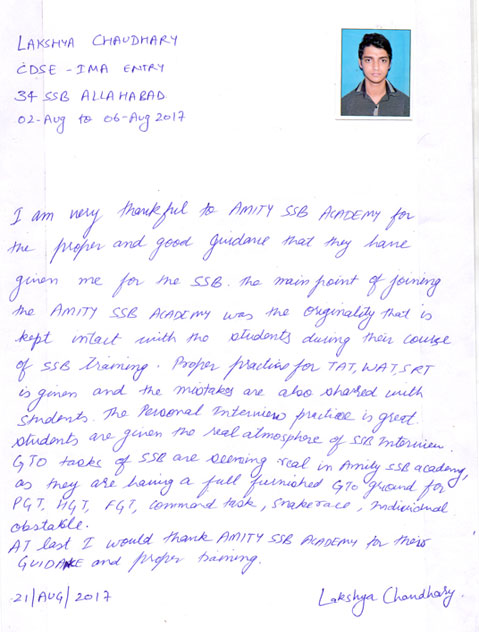 LAKSHYA CHAUDHARY
CDSE - IMA ENTRY
34 SSB ALLAHABAD
02-Aug to 06-Aug 2017
I am very thankful to AMITY SSB ACADEMY for
the proper and good guidance that they have
given me for the SSB. the main point of joining
the AMITY SSB ACADEMY was the originality that is
kept intact with the students during their course
of SSB training. Proper practice for TAT, WAT, SRT
is given and the mistakes are also shared with
students. The Personal Interview practice is great.
students are given the real atmosphere of SSB Interview.
GTO tasks of SSB are seeming real in Amity SSB academy,
as they are having a full furnished GTO ground for
PGT, HGT, FGT, command task, snakerace, Individual
obstable.
AT last I would thank AMITY SSB ACADEMY for their
GUIDANCE and proper training.
21/AUG/2017
Lakshya Chaudhary.